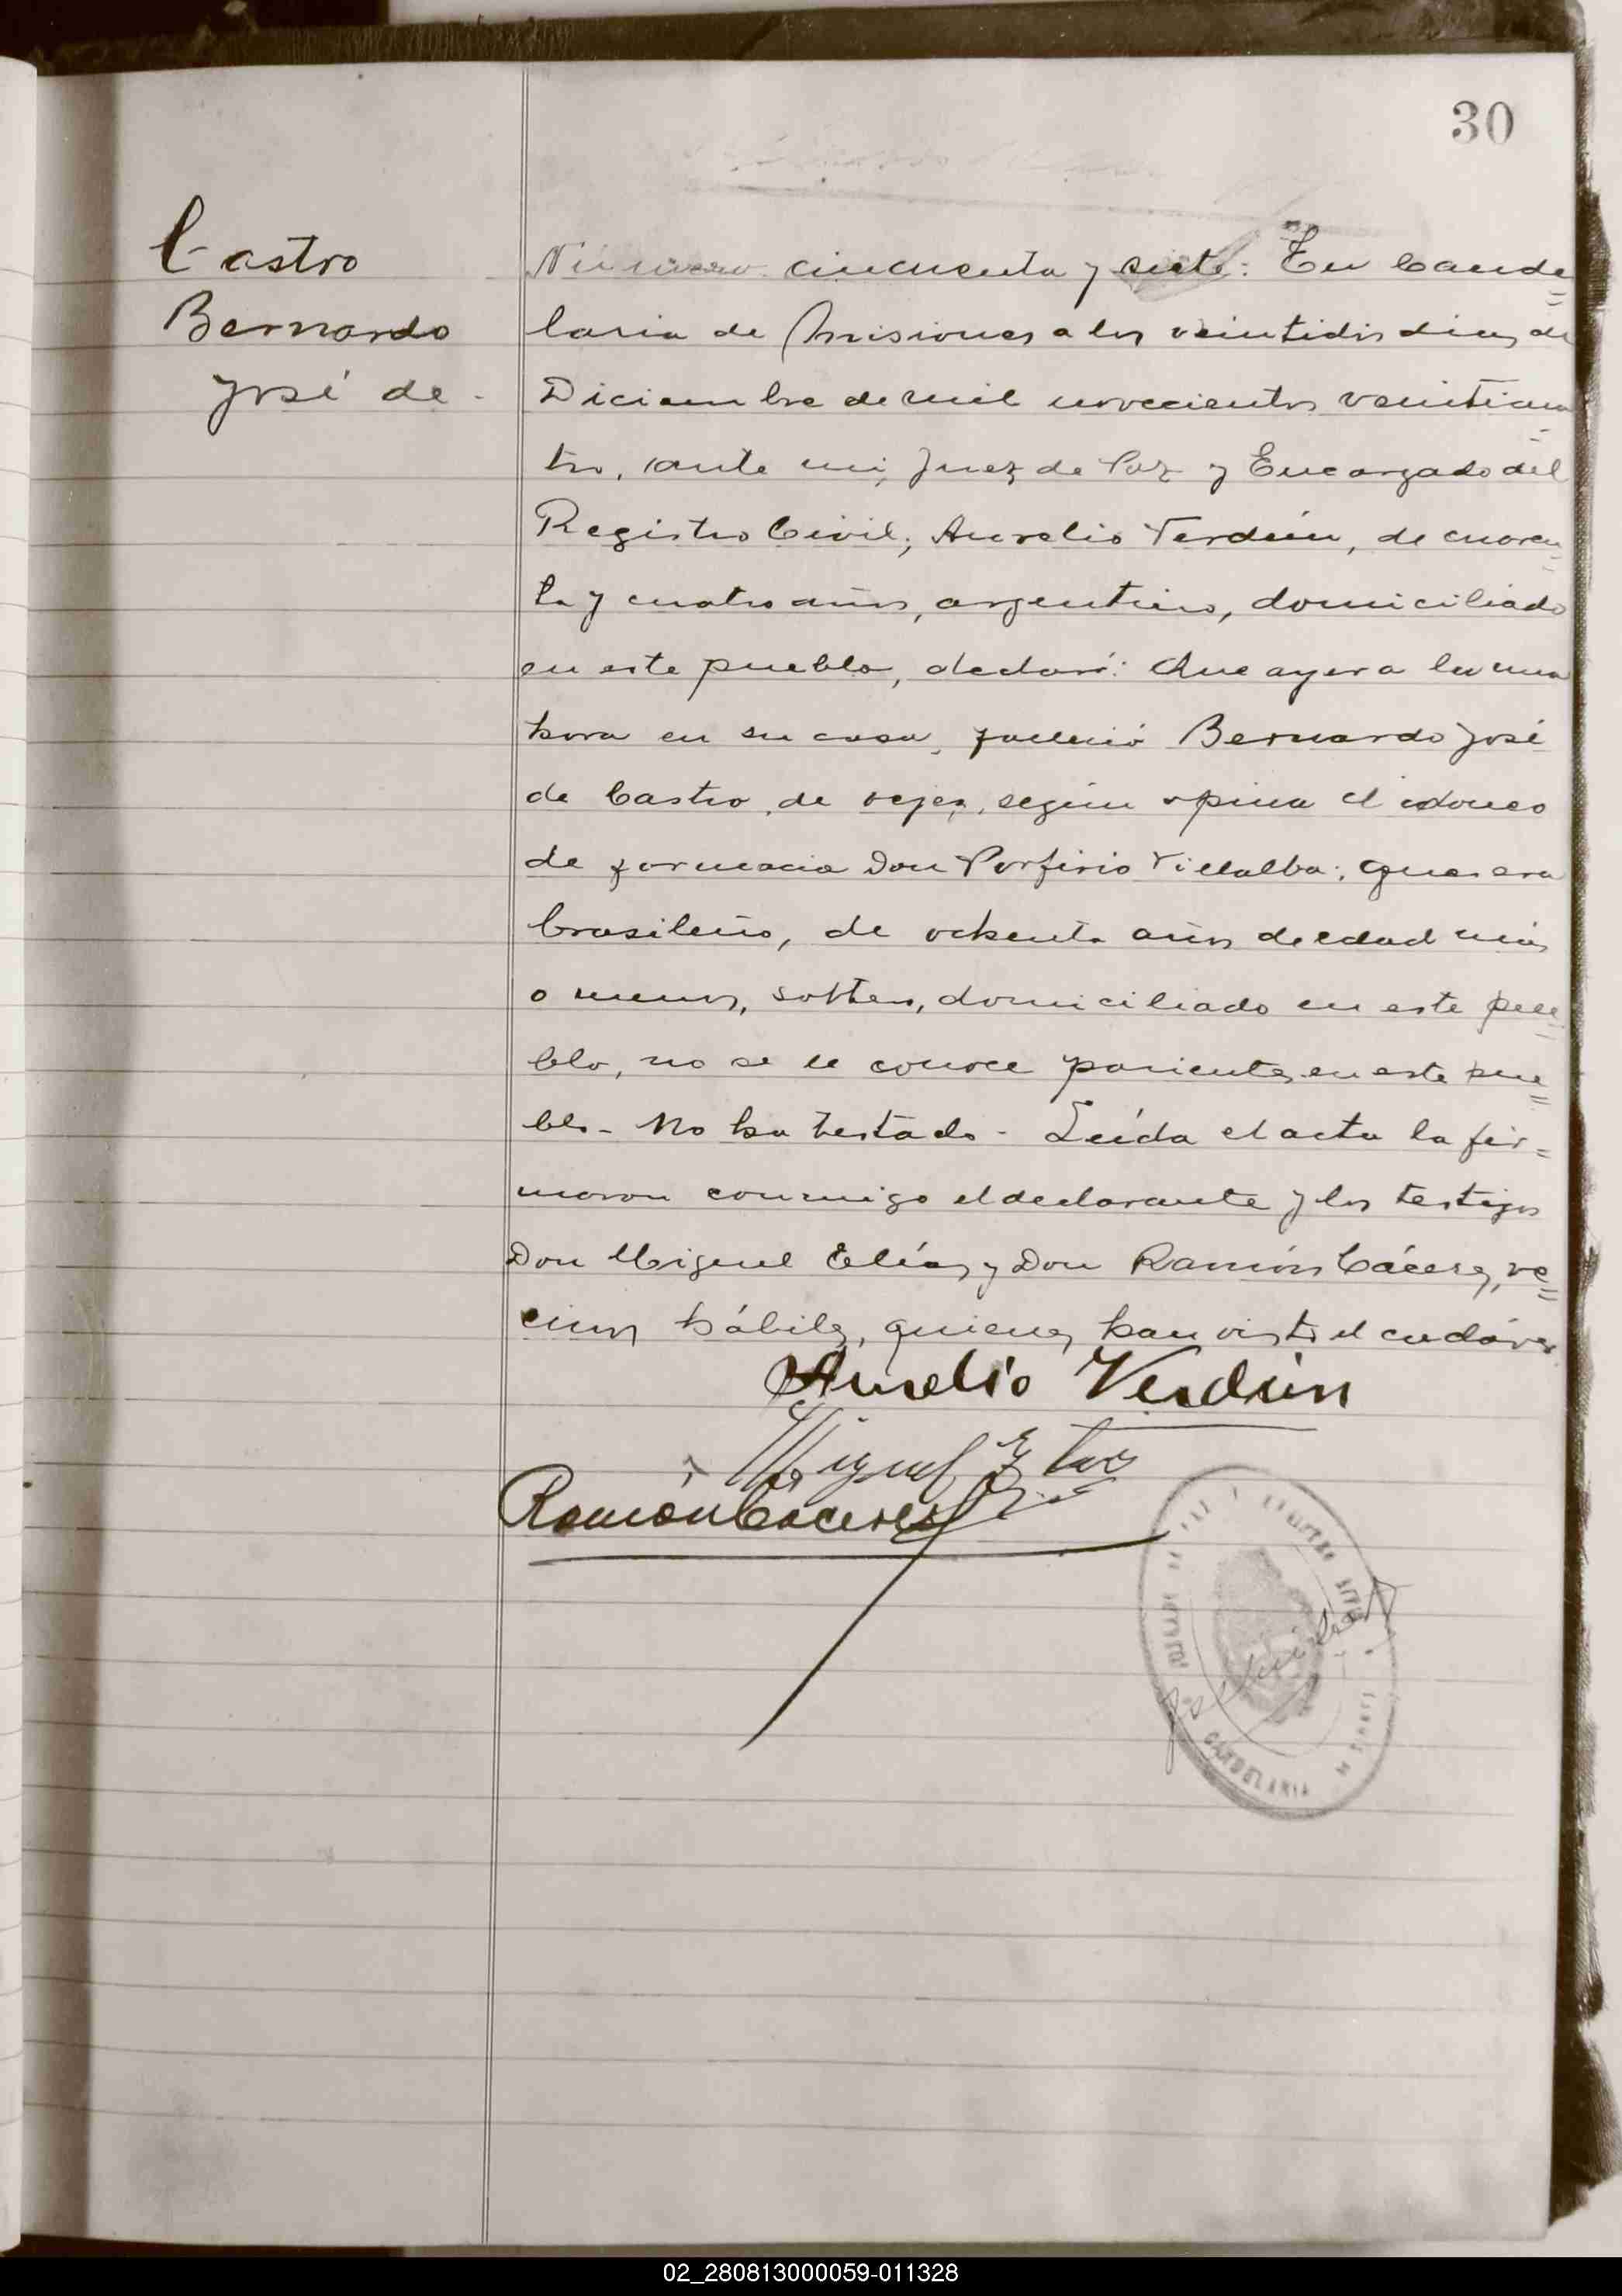 30
Castro
Bernardo
José de -
Número cincuenta y siete: En Cande=
laria de Misiones a los veintidis dias de
Diciembre de mil novecientos veinticua=
tro, ante mi, Juez de Paz y Encargado del
Registro Civil; Aurelio Verdún, de cuaren=
ta y cuatro años, argentino, domiciliado
en este pueblo, declaró: Que ayer a la una
hora en su casa, falleció Bernardo José
de Castro, de vejez, según opina el idoneo
de farmacia Don Porfirio Villalba; que era
brasileño, de ochenta años de edad más
o menos, soltero, domiciliado en este pue=
blo, no se le conoce parientes en este pue=
blo - No ha testado - Leída el acta la fir=
maron conmigo el declarante y los testigos
Don Miguel Elías y Don Ramón Cáceres, ve=
cinos hábiles, quienes han visto el cadáver
Aurelio Verdún
Miguel Elias
Ramón Cáceres
CANDELARIA
02_280813000059-011328